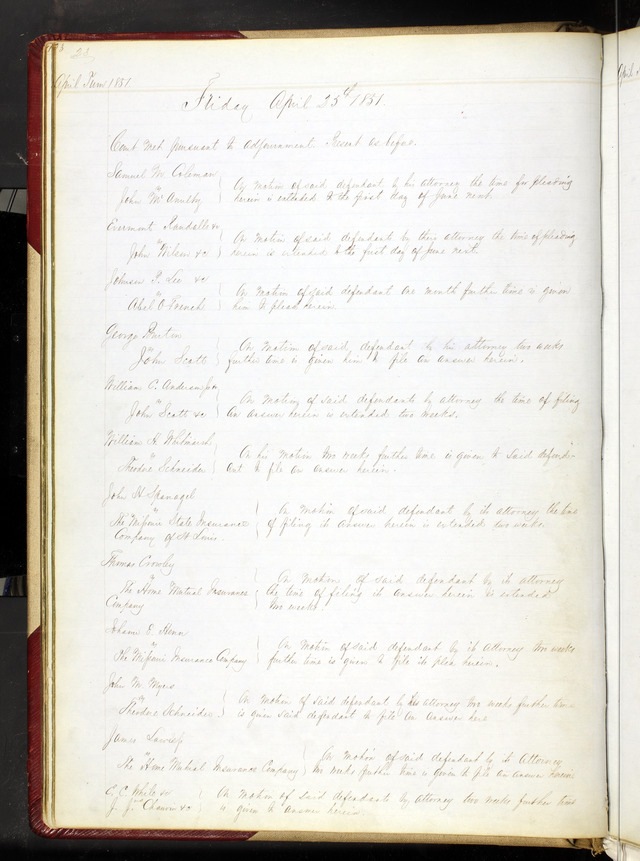 23
April Term 1851
Friday April 25th 1851.
Court met pursuant to adjournment. Present as before.
Samuel M. Coleman
vs
John Mc Annelly
On motion of said defendant by his attorney the time for pleading
herein is extended to the first day of June next.
Evermont Randall &c
vs
John Wilson &c
On motion of said defendant by their attorney the time of pleading
herein is extended to the first day of June next.
Johnson P. Lee &c
vs
Abel O French
On motion of said defendant one month further time is given
him to plead herein.
George Burton
vs
John Scott
On motion of said defendant by his attorney two weeks
further time is given him to file an answer herein.
William C. Anderson
vs
John Scott &c
On motion of said defendants by attorney the time of filing
an answer herein is extended two weeks.
William H. Whitmarsh
vs
Theodore Schneider
On his motion two weeks further time is given to said defend-
ant to file an answer herein.
John H Spanagel
vs
The Missouri State Insurance
Company of St Louis.
On motion of said defendant by its attorney the time
of filing its answer herein is extended two weeks.
Thomas Crowley
vs
The Home Mutual Insurance
Company
On motion of said defendant by its attorney
the time of filing its answer herein is extended
two weeks.
E.
vs
The Missouri Insurance Company
On motion of said defendant by its attorney two weeks
further time is given to file its plea herein.
John M. Myers
vs
Theodore Schneider
On motion of said defendant by his attorney two weeks further time
is given said defendant to file an answer here
James
vs
The Home Mutual Insurance Company
On motion of said defendant by its attorney
two weeks further time is given to file an answer herein
C. C. White &c
vs
J. J. &c
On motion of said defendants by attorney two weeks further time
is given to answer herein.